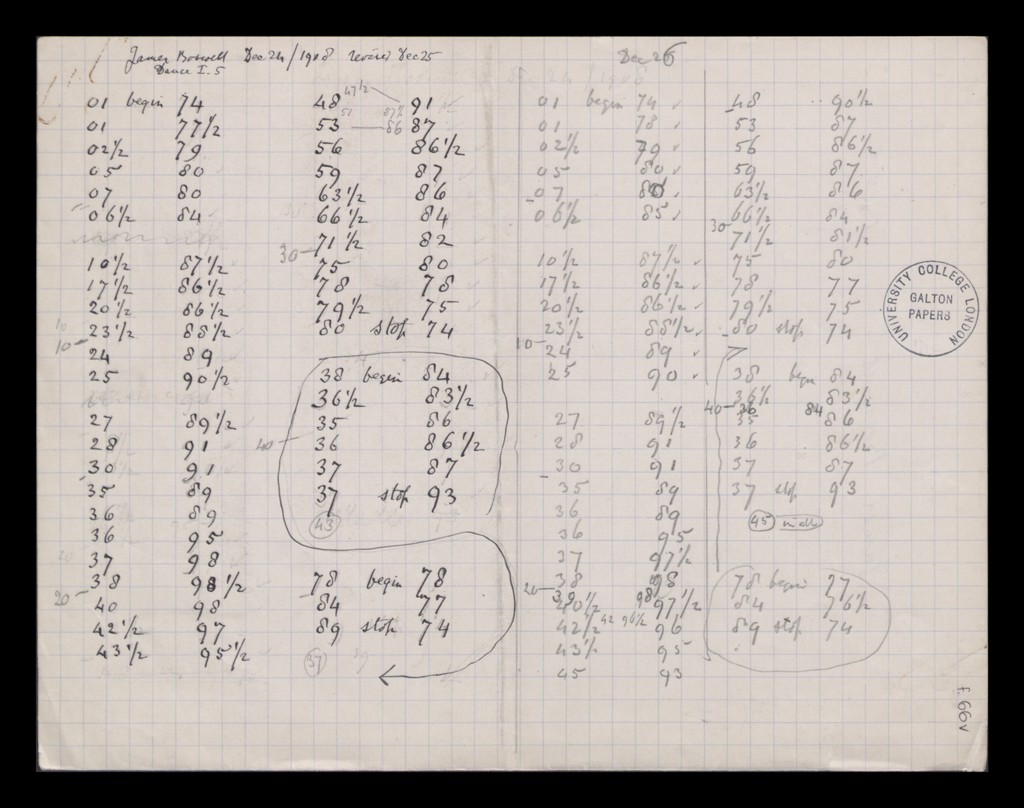 James Boswell Dec 24/1908 revised Dec 25
Dance I. 5
01 begin 74
01 77½
02½ 79
05 80
07 80
06½ 84
10½ 87½
17½ 86½
20½ 86½
10
23½ 88½
10
24 89
25 90½
27 89½
28 91
30 91
35 89
36 89
36 95
37 98
20
38 98½
20
40 98
42½ 97
43½ 95½
48 47½ 91
53 51 87½ 86 87
56 86½
59 87
63½ 86
66½ 84
30
71½ 82
75 80
78 78
79½ 75
80 stop 74
38 begin 84
36½ 83½
35 86
40
36 86½
37 87
37 stop 93
43
78 begin 78
84 77
89 stop 74
37
Dec 26
01 begin 74
01 78
02½ 79
05 80
07 80
06½ 85
10½ 87½
17½ 86½
20½ 86½
23½ 88½
10
24 89
25 90
27 89½
28 91
30 91
35 89
36 89
36 95
37 97½
38 98
20
39 98
40½ 97½
42½ 42 96½ 96
43½ 95
45 93
48 90½
53 87
56 86½
59 87
63½ 86
66½ 84
30
71½ 81½
75 80
78 77
79½ 75
80 stop 74
38 begin 84
36½ 83½
40
36 84
35 86
36 86½
37 87
37 stop 93
45
78 begin 77
84 76½
89 stop 74
UNIVERSITY COLLEGE LONDON
GALTON
PAPERS
f. 66v